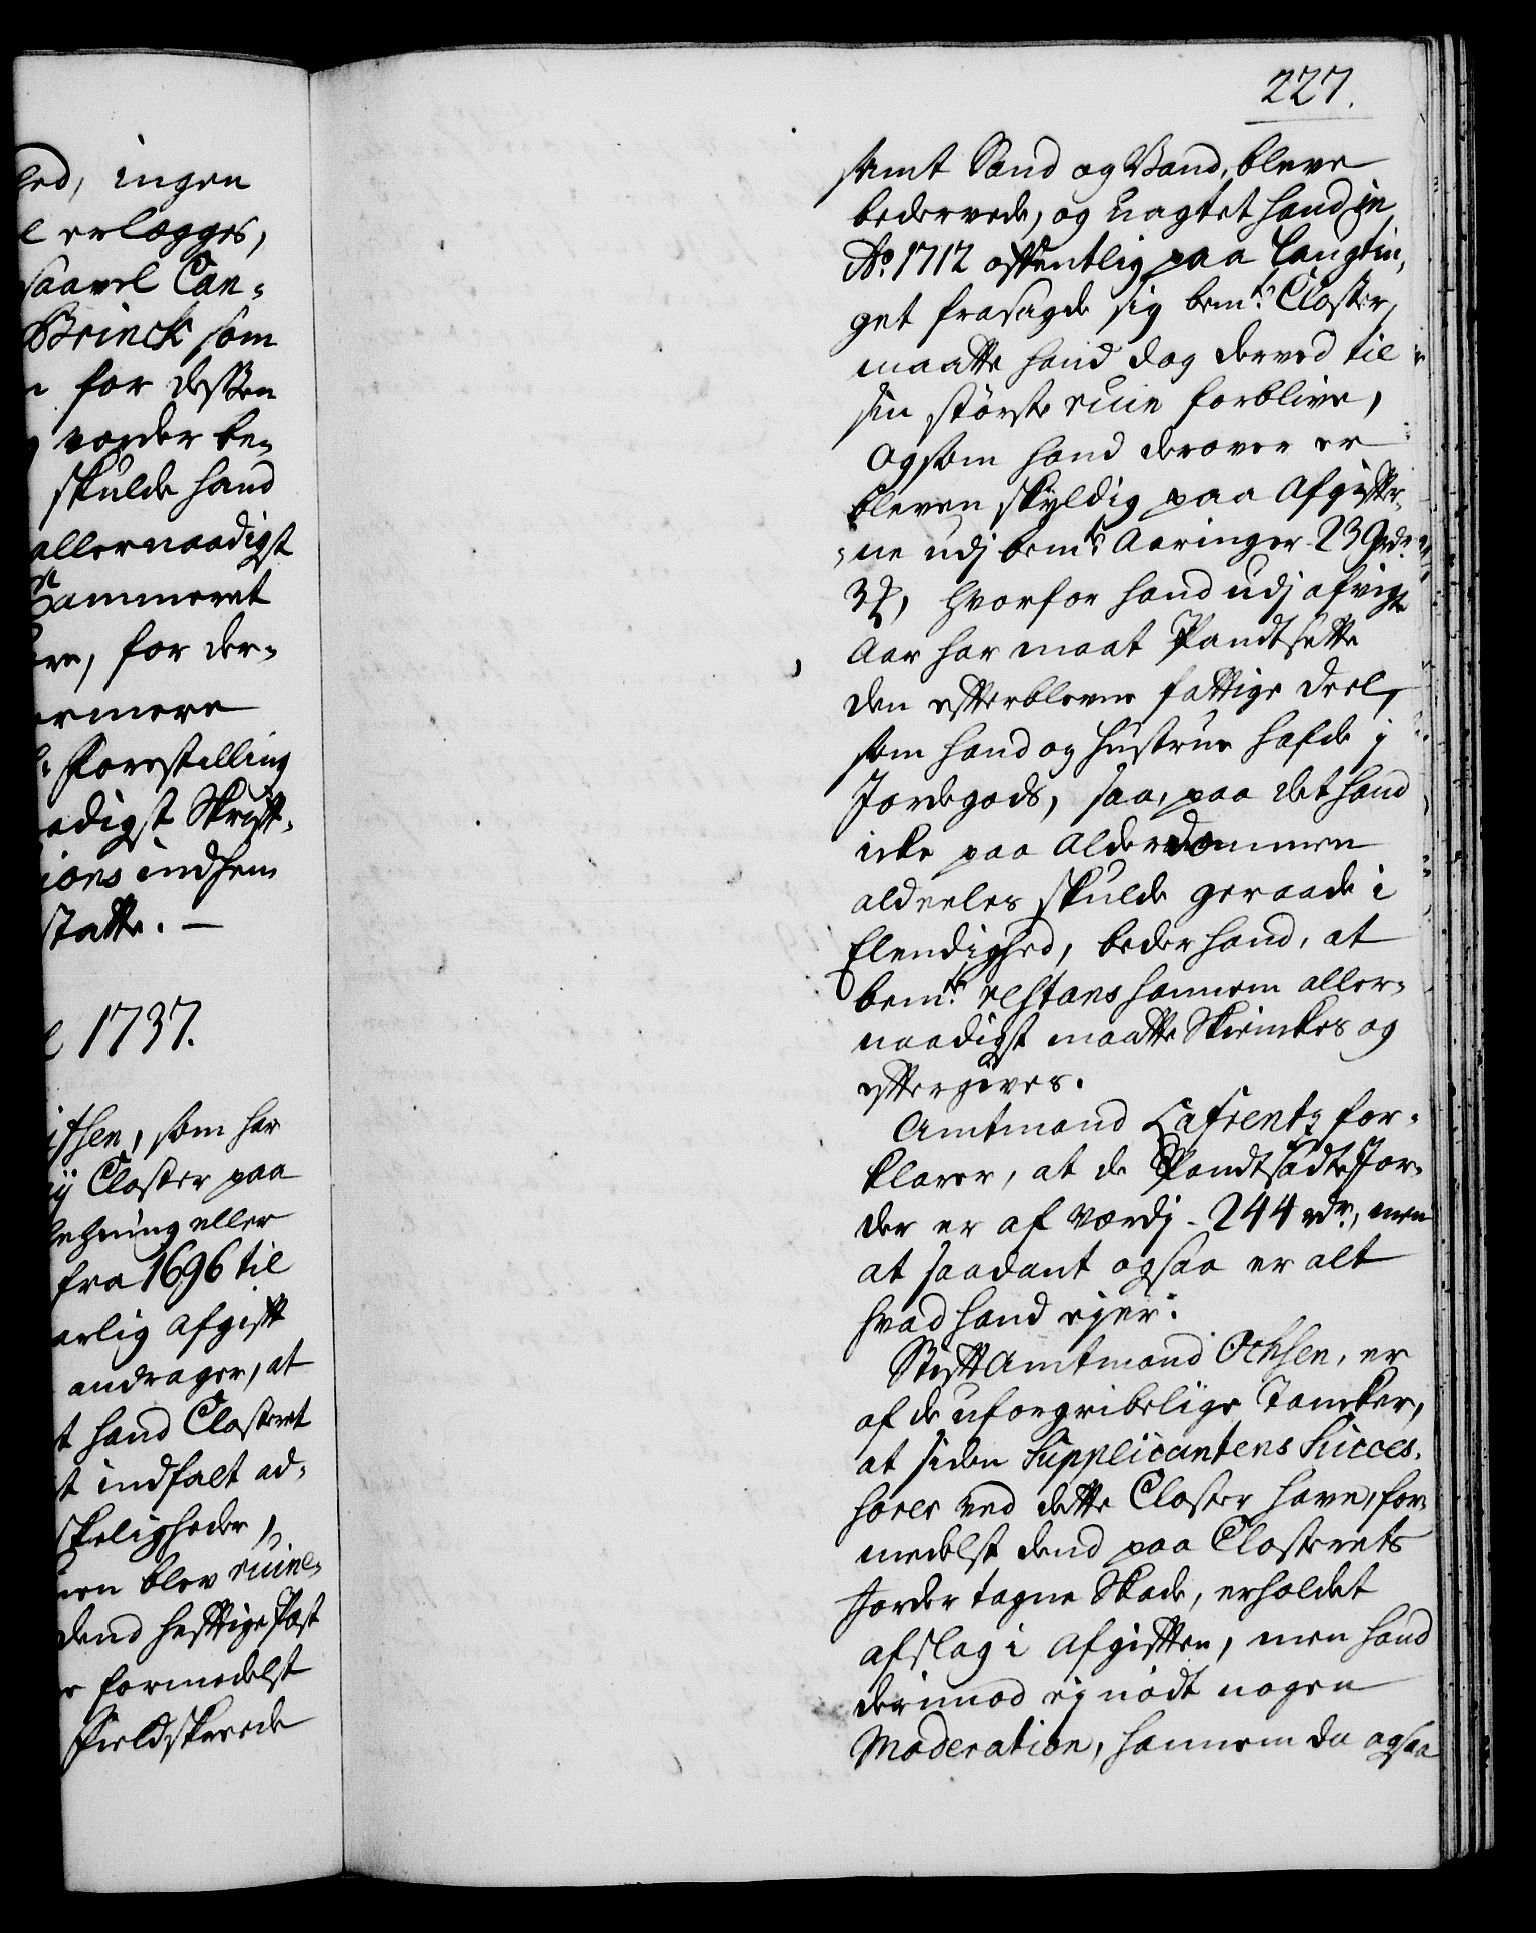 hed, ingen
erlægges,
saavel Can-
Brinck som
for dessen
vorder be-
skulde hand
allernaadigst
Cammeret
for der-
ermere
Forestilling
adigst Skrift-
ions indhen
statte. —
1737.
som har
Closter paa
eller
fra 1696 til
arlig Afgift
andrager, at
hand Closteret
indfalt ad-
skeligheder,
men blev ruine-
dend hefftige Pæst
formedelst
Fieldskreede
227.
samt Sand og Vand, bleve
bedervede, og uagtet hand in
Ao. 1712 offentlig paa Langtin,
get frasagde sig bemte. Closter,
maatte hand dog derved til
sin störste ruin forblive,
Og som hand derover er
bleven skyldig paa Afgifter-
-ne udj bemte. Aaringer 239 rdr.
3 ß, hvorfor hand udj afvigte
Aar har maat Pandtsette
den efterblevne fattige Deel,
som hand og Hustrue hafde i
Jordegods, saa, paa det hand
icke paa Alderdommen
aldeeles skulde geraade i
Elendighed, beder hand, at
bemte. restans hannem aller-
naadigst maatte Skienckes og
eftergives.
Amtmand Lafrentz for-
klarer, at de Pandtsadte Jor-
der er af Værdj - 244 rdr., men
at saadant ogsaa er alt
hvad hand ejer.
StiftAmtmand Ochsen, er
af de uforgribelige Tancker,
at siden Supplicantens Succes-
sores ved dette Closter have, for-
medelst dend paa Closterets
Jorder tagne Skade, erholdet
afslag i Afgiften, men hand
derimod ej nödt nogen
Moderation, hannem da ogsaa